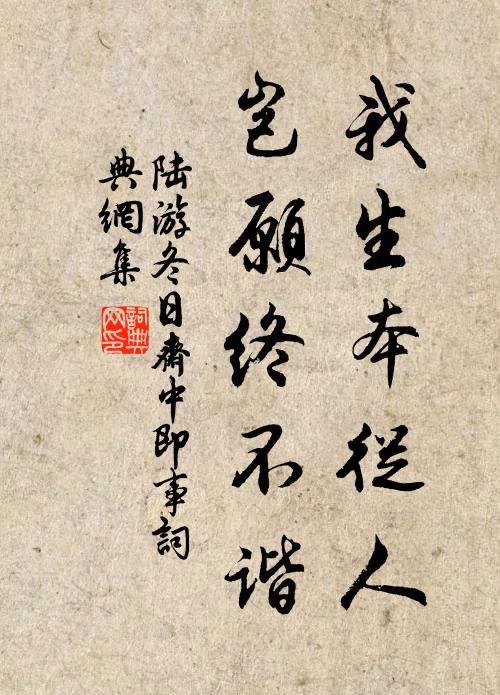 我生本從人
岂願終不谐
陸游冬日齋中即事詞
典網集
詞典網印